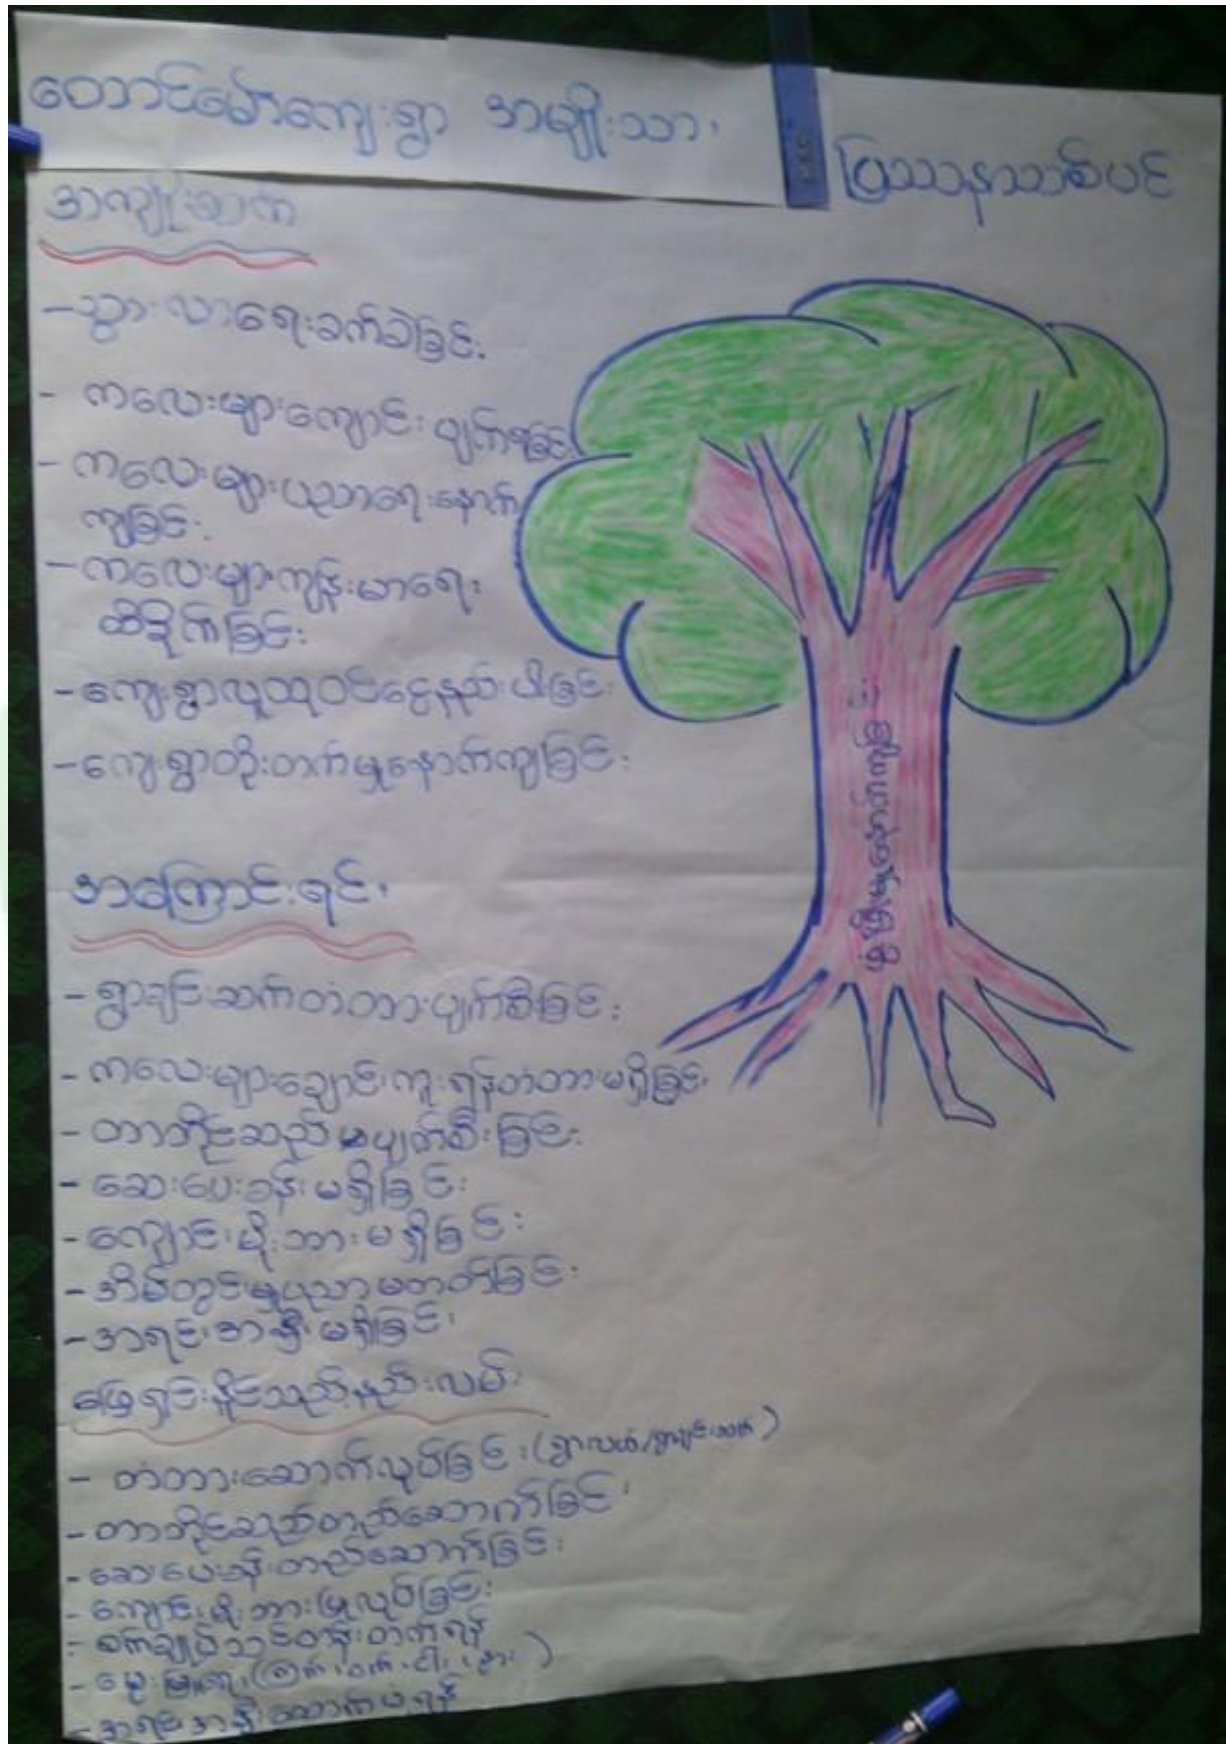 တောင်မော်ကျေးရွာ အမျိုးသား၊
ပြဿနာသစ်ပင်
အကျိုးဆက်
-သွားလာရေးခက်ခဲခြင်း
- ကလေးများကျောင်းပျက်ရခြင်း
- ကလေးများပညာရေးနောက်
ကျခြင်း
- ကလေးများကျန်းမာရေး
ထိခိုက်ခြင်း
-ကျေးရွာလူထုဝင်ငွေနည်းပါးခြင်း
-ကျေးရွာတိုးတက်မှုနောက်ကျခြင်း
ဖွံ့ဖြိုးမှုနောက်ကျခြင်း
အကြောင်းရင်း
- ရွာချင်းဆက်တံတားပျက်စီးခြင်း
- ကလေးများချောင်းကူးရန်တံတားမရှိခြင်း
- တာဘိုင်ဆည်ပျက်စီးခြင်း
- ဆေးပေးခန်းမရှိခြင်း
- ကျောင်းမိုဘားမရှိခြင်း
- အိမ်တွင်းမှုပညာမတတ်ခြင်း
-အရင်းအနှီးမရှိခြင်း
ဖြေရှင်းနိုင်သည့်နည်းလမ်း
- တံတားဆောက်လုပ်ခြင်း (ရွာလယ်/ရွာချင်းဆက်)
-တာဘိုင်ဆည်တည်ဆောက်ခြင်း
-ဆေးပေးခန်းတည်ဆောက်ခြင်း
- ကျောင်းမိုဘားပြုလုပ်ခြင်း
- စက်ချုပ်သင်တန်းတက်ရန်
- မွေးမြူရေး (ကြက်၊ ဝက်၊ ငါး၊ နွား)
-အရင်းအနှီးထောက်ပံ့ရန်